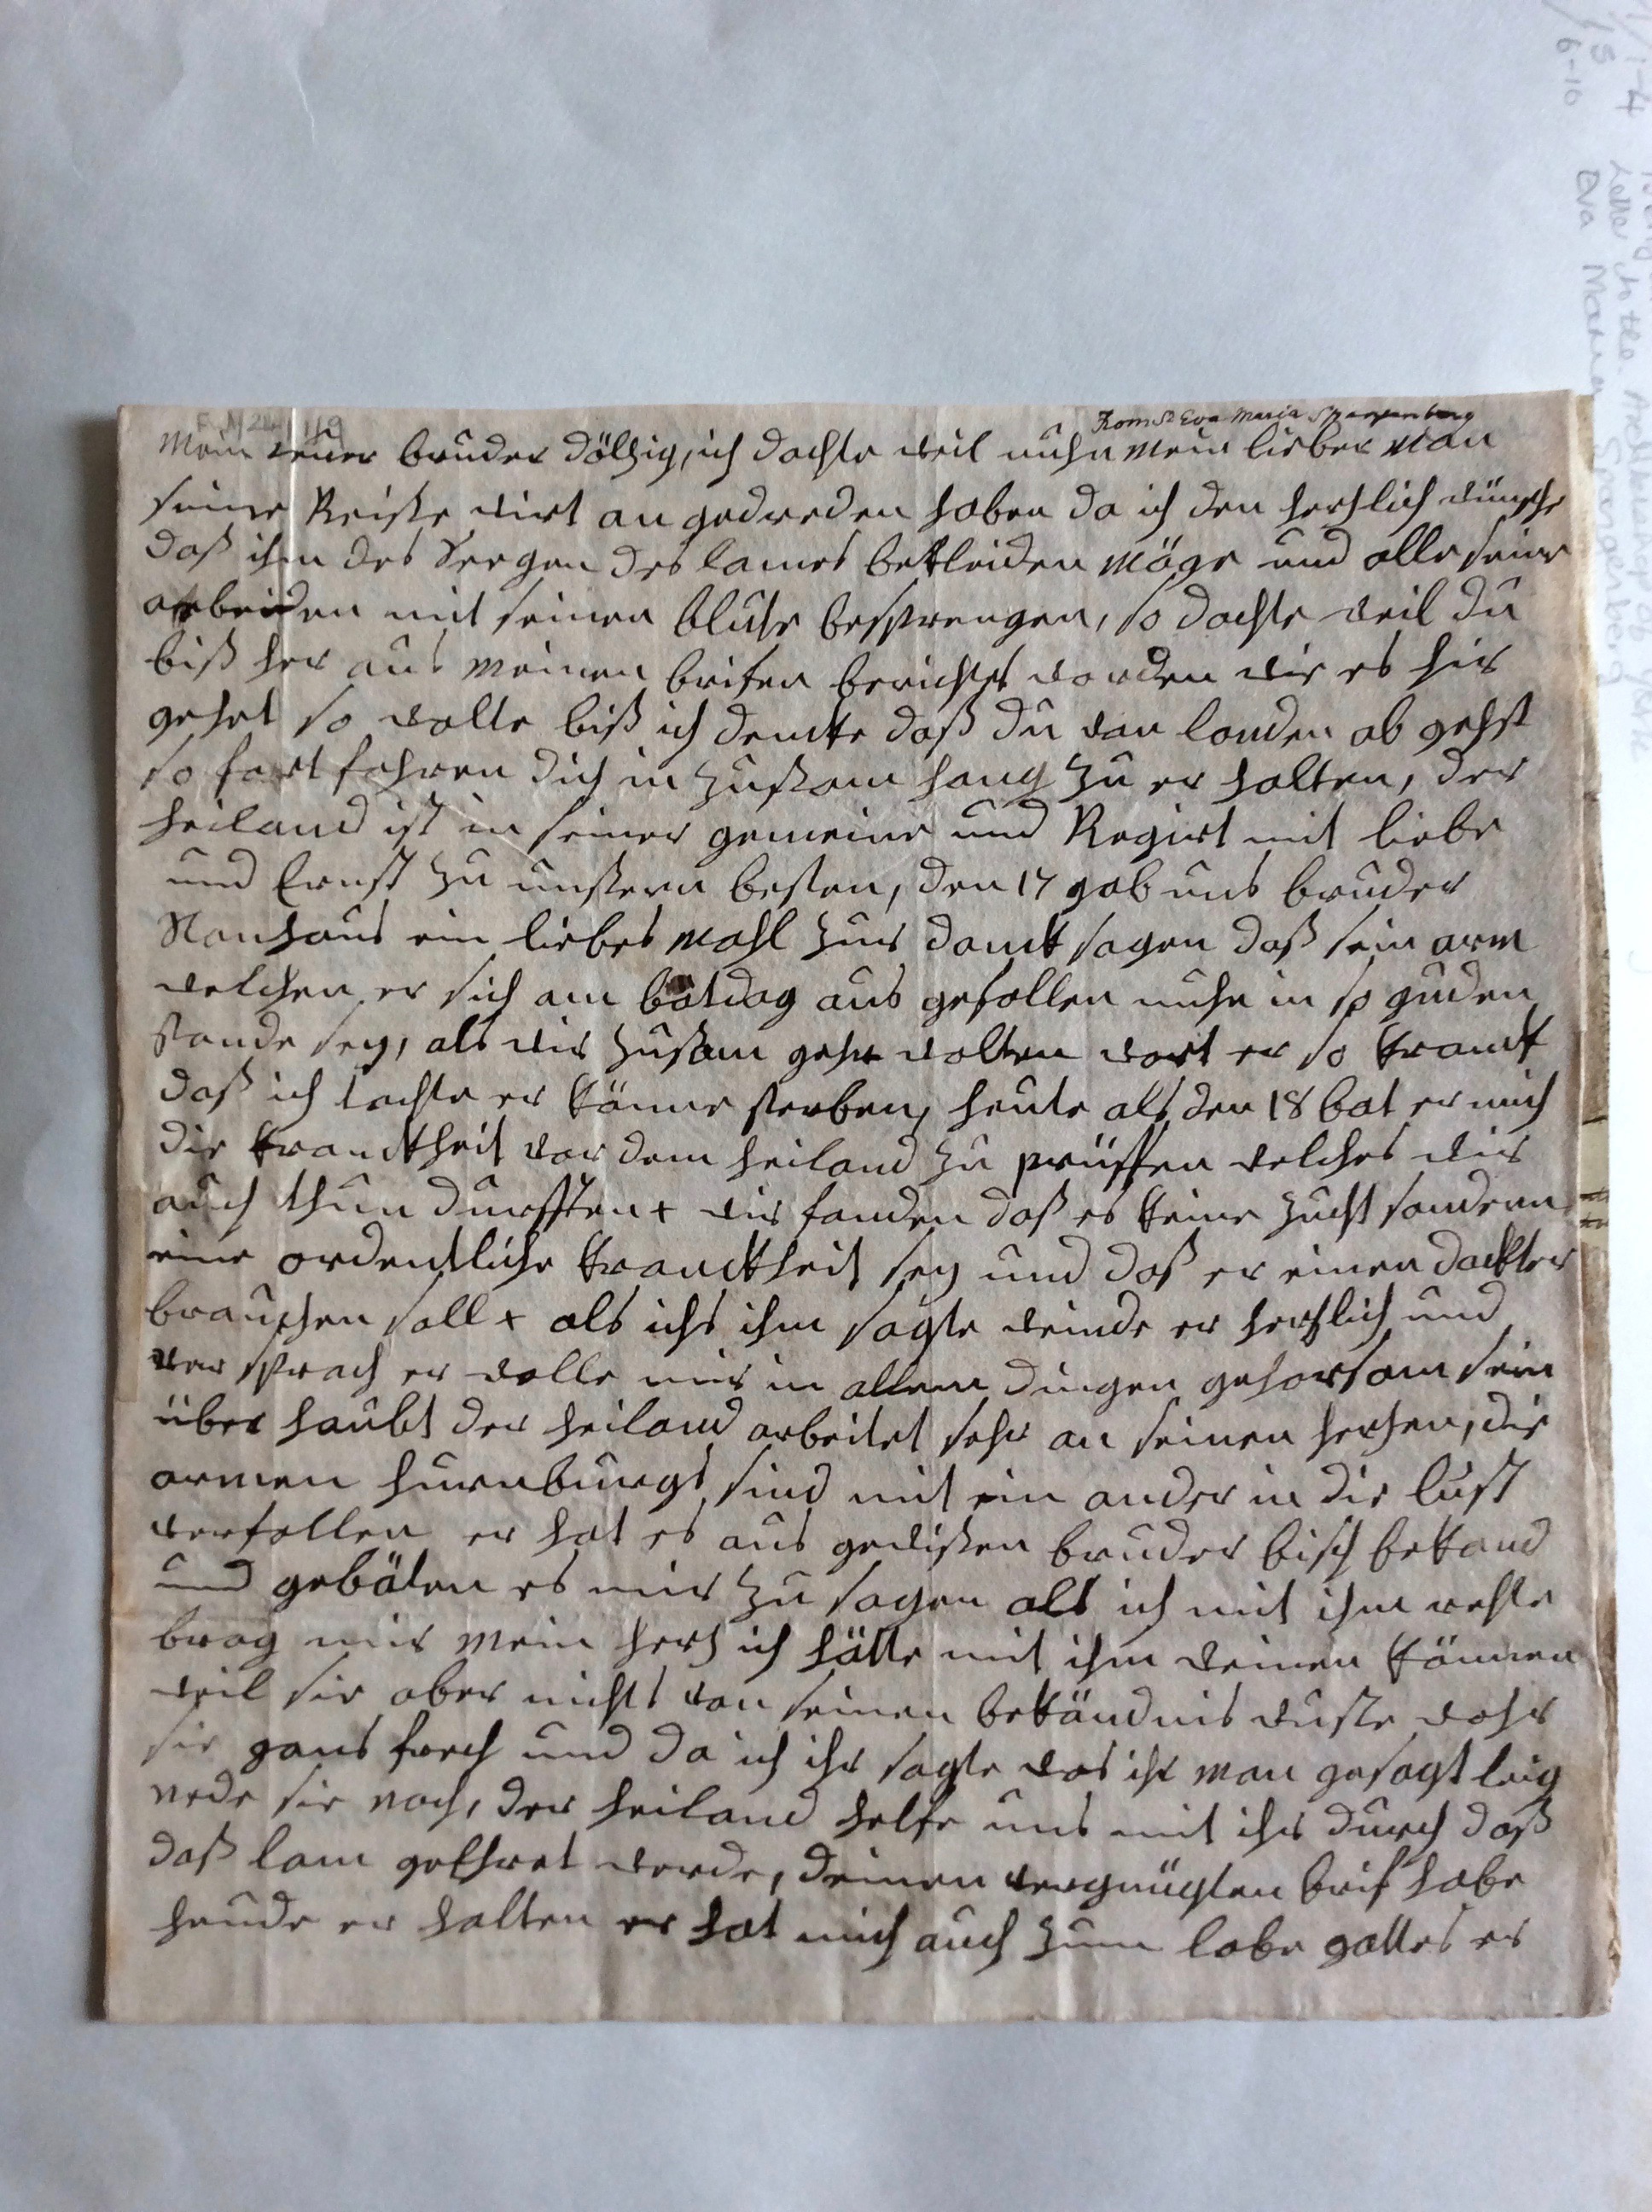 From Sr Eva Maria Spangenberg
Mein teurer bruder Döltzig, ich dachte weil nuhn mein lieber Man
seine Reisse wirt an gedreden haben da ich den hertzlich wünsche
daß ihn des Seegen des lames bekleiden möge und alle seine
arbeiden mit seinen blute besprengen, so dachte weil du
biß her aus meinen brifen berichtet worden wie es hir
gehet so wolte biß ich dencke daß du van landen ab gehst
so fort fahren dich in zusam hang zu er halten, der
heiland ist in seiner gemeine und Regirt mit liebe
und Ernst zu unsern besten, den 17 gab uns bruder
ein liebes mahl zur danck sagen daß sein arm
welchen er sich am bätdag aus gefallen nuhn in so guden
stande sey, als wir zusam gehn wolten wart er so kranck
daß ich dachte er könne sterben, heute als den 18 bat er mich
die kranckheit vor dem heiland zu prüffen welches wir
auch thun durfften + wir fanden daß es keine zucht sondern
eine ordentliche kranckheit sey und daß er einen docktor
brauchen soll + als ichs ihm sagte weinde er hertzlich und
ver sprach er wolle mir in allem dingen gehorsam sein
über haubt der heiland arbeitet sehr an seinen hertzen, die
armen hurnburgs sind mit ein ander in die lust
verfallen er hat es aus gewissen bruder bisch bekand
und gebäten es mir zu sagen als ich mit ihm rehte
brag mir mein hertz ich hätte mit ihm weinen können
weil sie aber nichts van seinen bekändnis wuste wahr
sie gans frech und da ich ihr sagte was ihr man gesagt leig
nede sie noch, der heiland helfe uns mit ihr durch daß
daß lam geEhret werde, deinen vergnügten brif habe
heude er halten er hat mich auch zum lobe gottes er